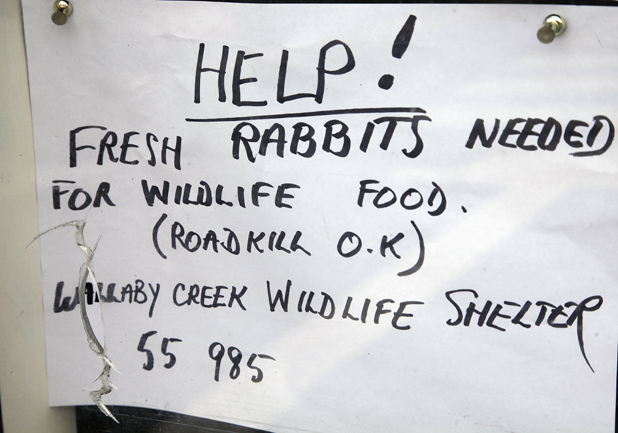 HELP!
FRESH RABBITS NEEDED
FOR WILDLIFE FOOD.
(ROADKILL O.K)
WALLABY CREEK WILDLIFE SHELTER
55 985